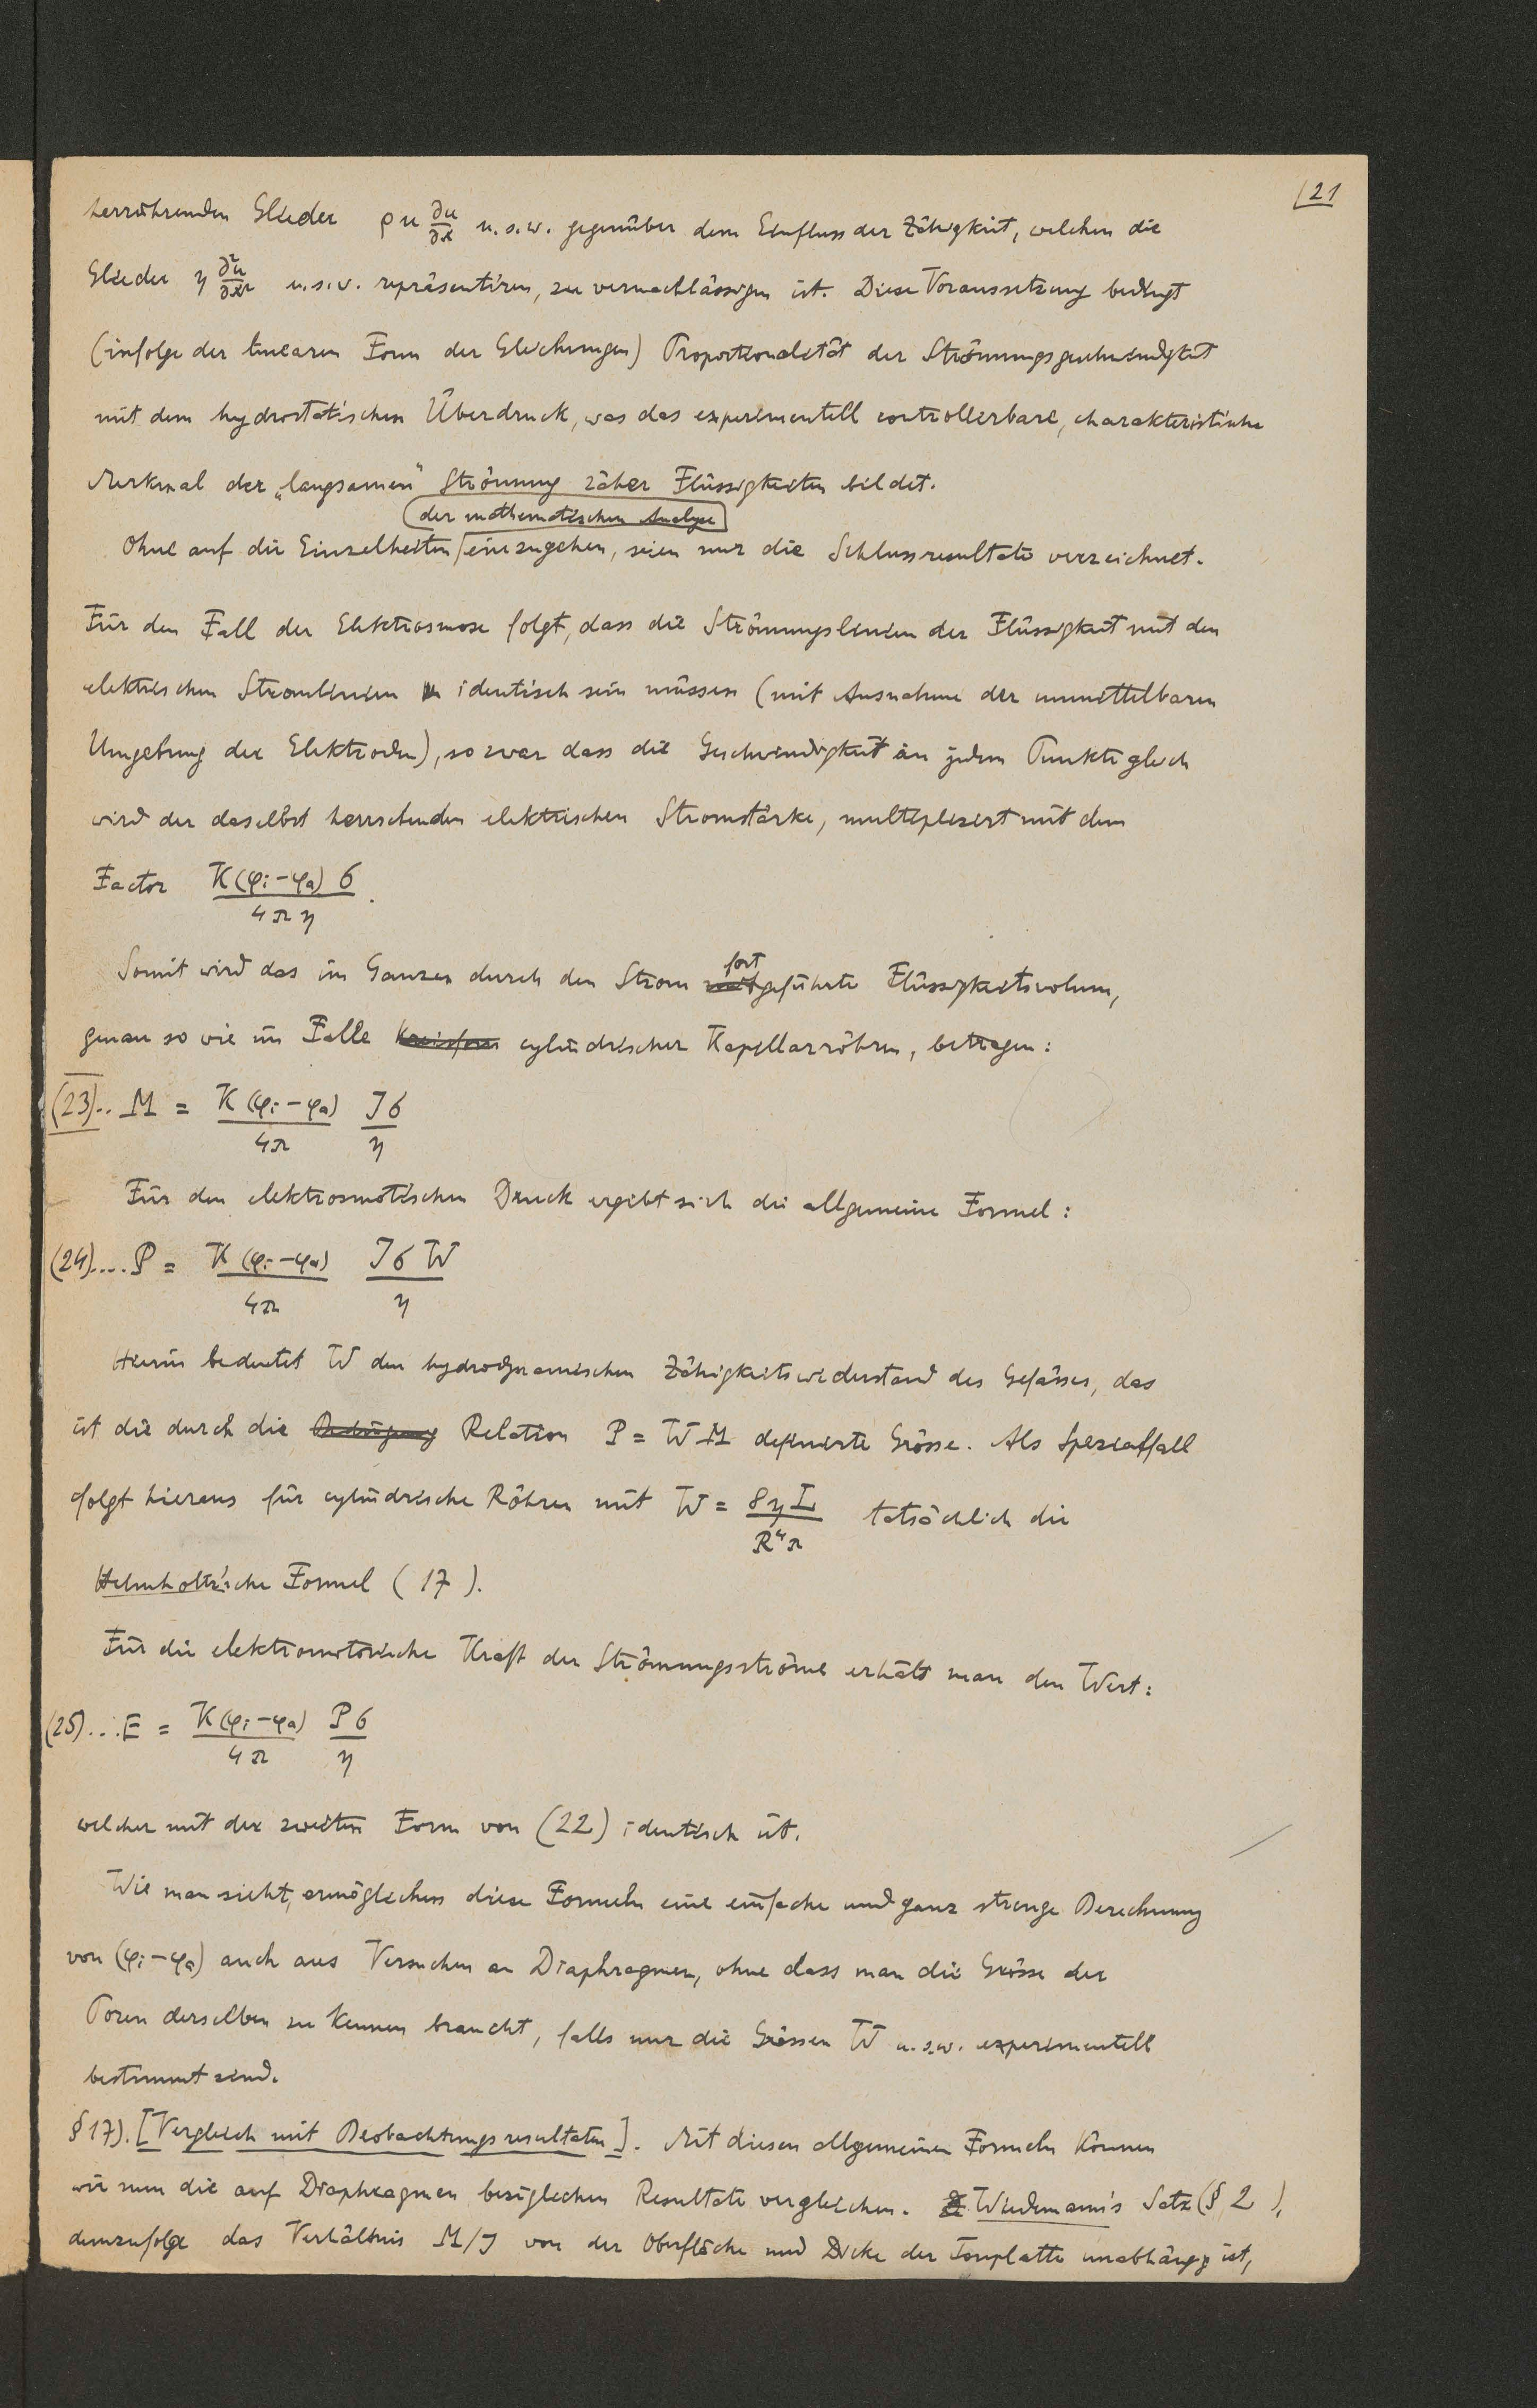 (21
herrührenden Glieder ρu ∂u/∂x u.s.w. gegenüber dem Einfluss der Zähigkeit, welchen die
Glieder η ∂²u/∂x² u.s.w. repräsentiren, zu vernachlässigen ist. Diese Voraussetzung bedingt
(infolge der linearen Form der Gleichungen) Proportionalität der Strömungsgeschwindigkeit
mit dem hydrostatischen Überdruck, was das experimentell controllierbare, charakteristische
Merkmal der „langsamen" Strömung zäher Flüssigkeiten bildet.
der mathematischen Analyse
Ohne auf die Einzelheiten einzugehen, seien nur die Schlussresultate verzeichnet.
Für den Fall der Elektrosmose folgt, dass die Strömungslinien der Flüssigkeit mit den
elektrischen Stromlinien identisch sein müssen (mit Ausnahme der unmittelbaren
Umgebung der Elektroden), so zwar dass die Geschwindigkeit in jedem Punkte gleich
wird der daselbst herrschenden elektrischen Stromstärke, multipliziert mit dem
Factor K(φi-φa)σ / 4πη.
Somit wird das im Ganzen durch den Strom fortgeführte Flüssigkeitsvolum,
genau so wie im Falle cylindrischer Kapillarröhren, betragen:
(23).. M = K(φi-φa)/4π Jσ/η
Für den elektrosmotischen Druck ergibt sich die allgemeine Formel:
(24).... P = K(φi-φa)/4π JσW/η
Hierin bedeutet W den hydrodynamischen Zähigkeitswiderstand des Gefässes, das
ist die durch die Bedingung Relation P = WM definierte Grösse. Als Spezialfall
folgt hieraus für cylindrische Röhren mit W = 8ηL/R⁴π tatsächlich die
Helmholtz'sche Formel (17).
Für die elektromotorische Kraft der Strömungsströme erhält man den Wert:
(25)... E = K(φi-φa)/4π Pσ/η
welcher mit der zweiten Form von (22) identisch ist.
Wie man sieht, ermöglichen diese Formeln eine einfache und ganz strenge Berechnung
von (φi-φa) auch aus Versuchen an Diaphragmen, ohne dass man die Grösse der
Poren derselben zu kennen braucht, falls nur die Grössen W u.s.w. experimentell
bestimmt sind.
§17). [Vergleich mit Beobachtungsresultaten]. Mit diesen allgemeinen Formeln können
wir nun die auf Diaphragmen bezüglichen Resultate vergleichen. Wiedemann's Satz (§ 2),
demzufolge das Verhältnis M/J von der Oberfläche und Dicke der Tonplatte unabhängig ist,